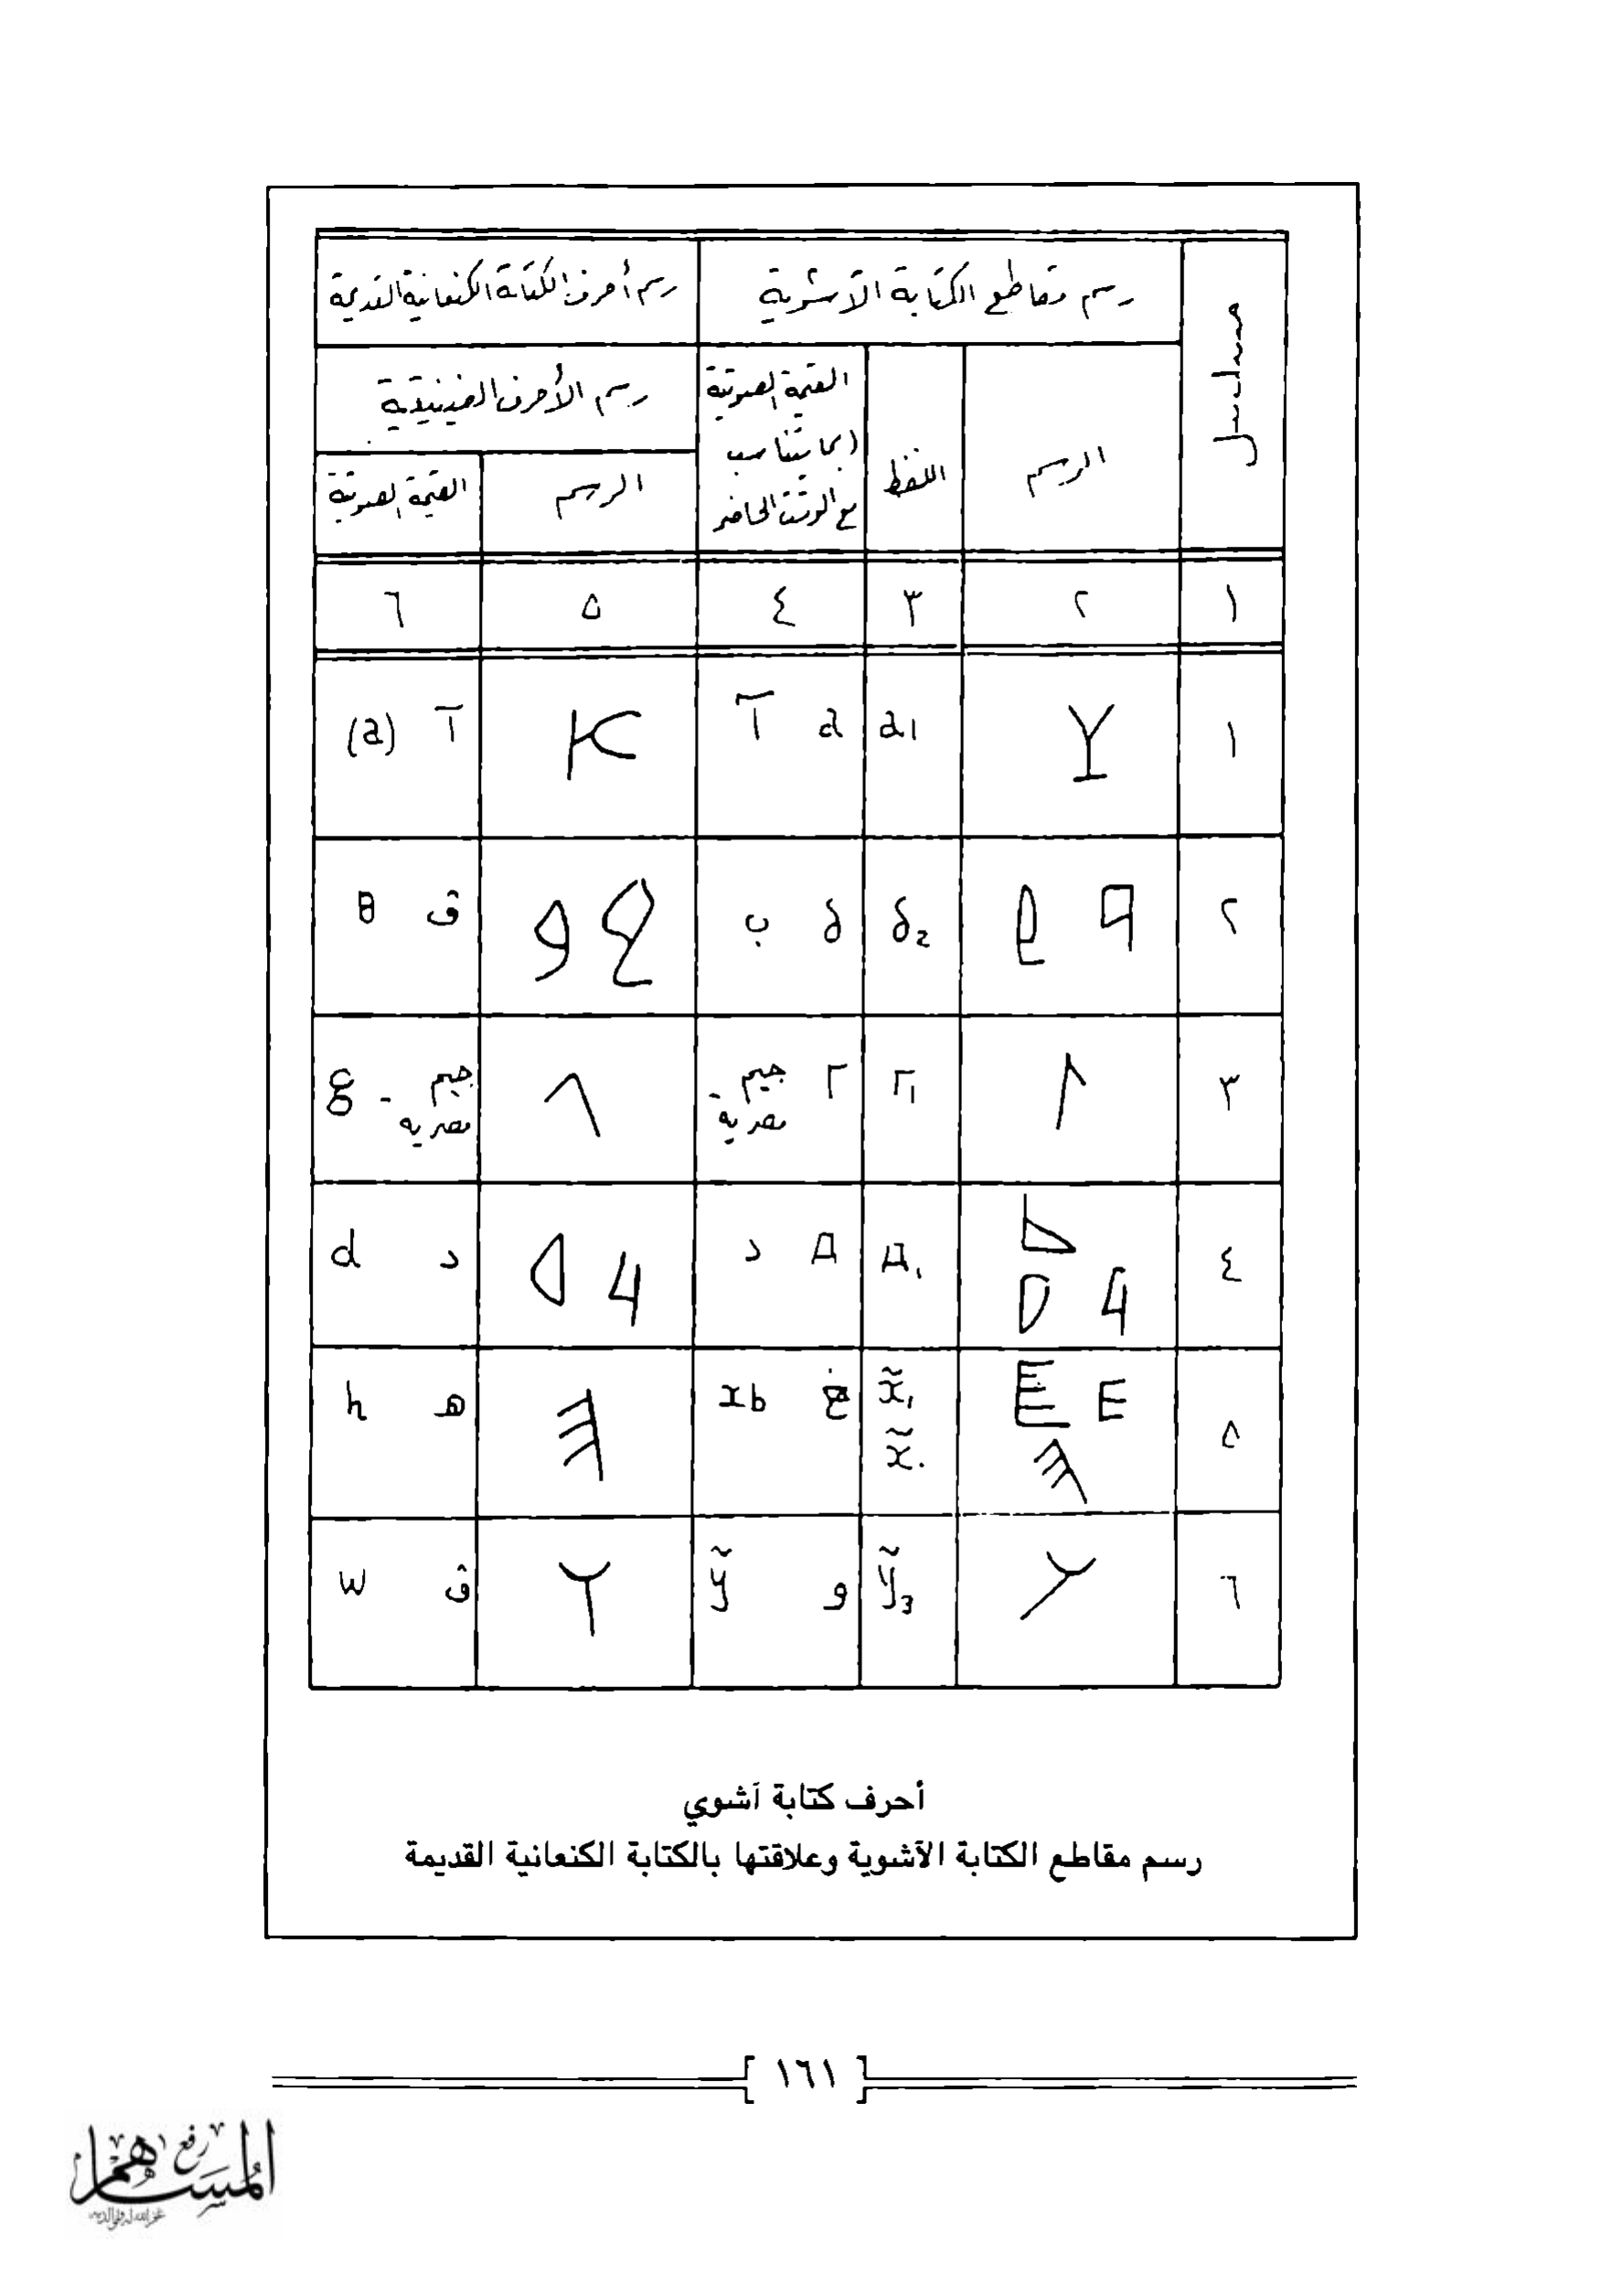 رسم مقاطع الكتابة الآشوية
رسم أحرف الكتابة الكنعانية القديمة
مسلسل
الرسم
اللفظ
القيمة الصوتية
(بما يتناسب
مع الوقت الحاضر
رسم الأحرف الفينيقية
الرسم
القيمة الصوتية
١ ٢ ٣ ٤ ٥ ٦
١ a1 a آ آ (a)
٢ δ2 δ ب ڤ B
٣ Г1 Г جيم مصرية جيم مصرية - g
٤ Д1 Д د د d
٥ x̃1 x̃. خ xb ه h
٦ ỹ3 و ỹ ڤ w
أحرف كتابة آشوي
رسم مقاطع الكتابة الآشوية وعلاقتها بالكتابة الكنعانية القديمة
[ ١٦١ ]
رفع
المساهم
غفر الله له ولوالديه